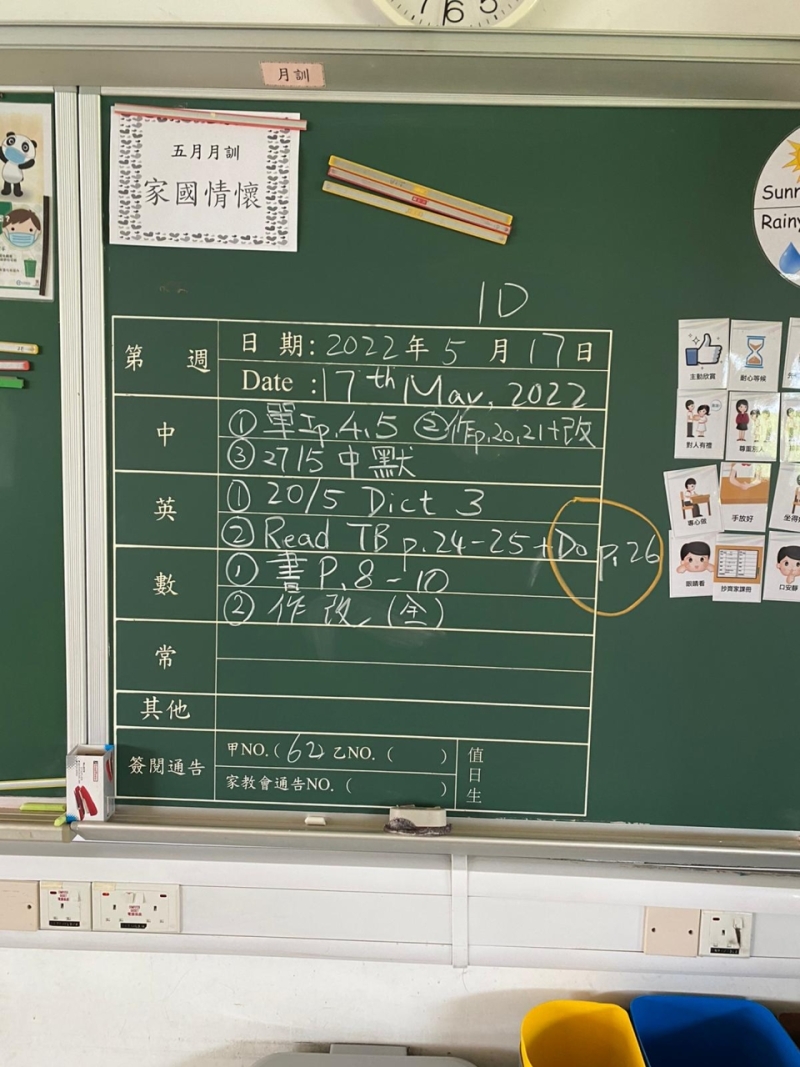 7 6 5
月訓
五月月訓
家國情懷
Sunn
Rainy
1D
第 週
日 期: 2022年 5 月 17日
Date : 17th May, 2022
中
① 單Ip.4,5 ②作p.20,21+改
③ 27/5 中默
英
① 20/5 Dict 3
② Read TB p.24-25 + Do p.26
數
① 書 P.8-10
② 作 改 (全)
常
其他
簽閱通告
甲NO.( 62 ) 乙NO. ( )
家教會通告NO. ( )
值日生
主動欣賞
耐心等候
對人有禮
尊重別人
專心做
手放好
坐得
眼睛看
抄齊家課冊
口安靜